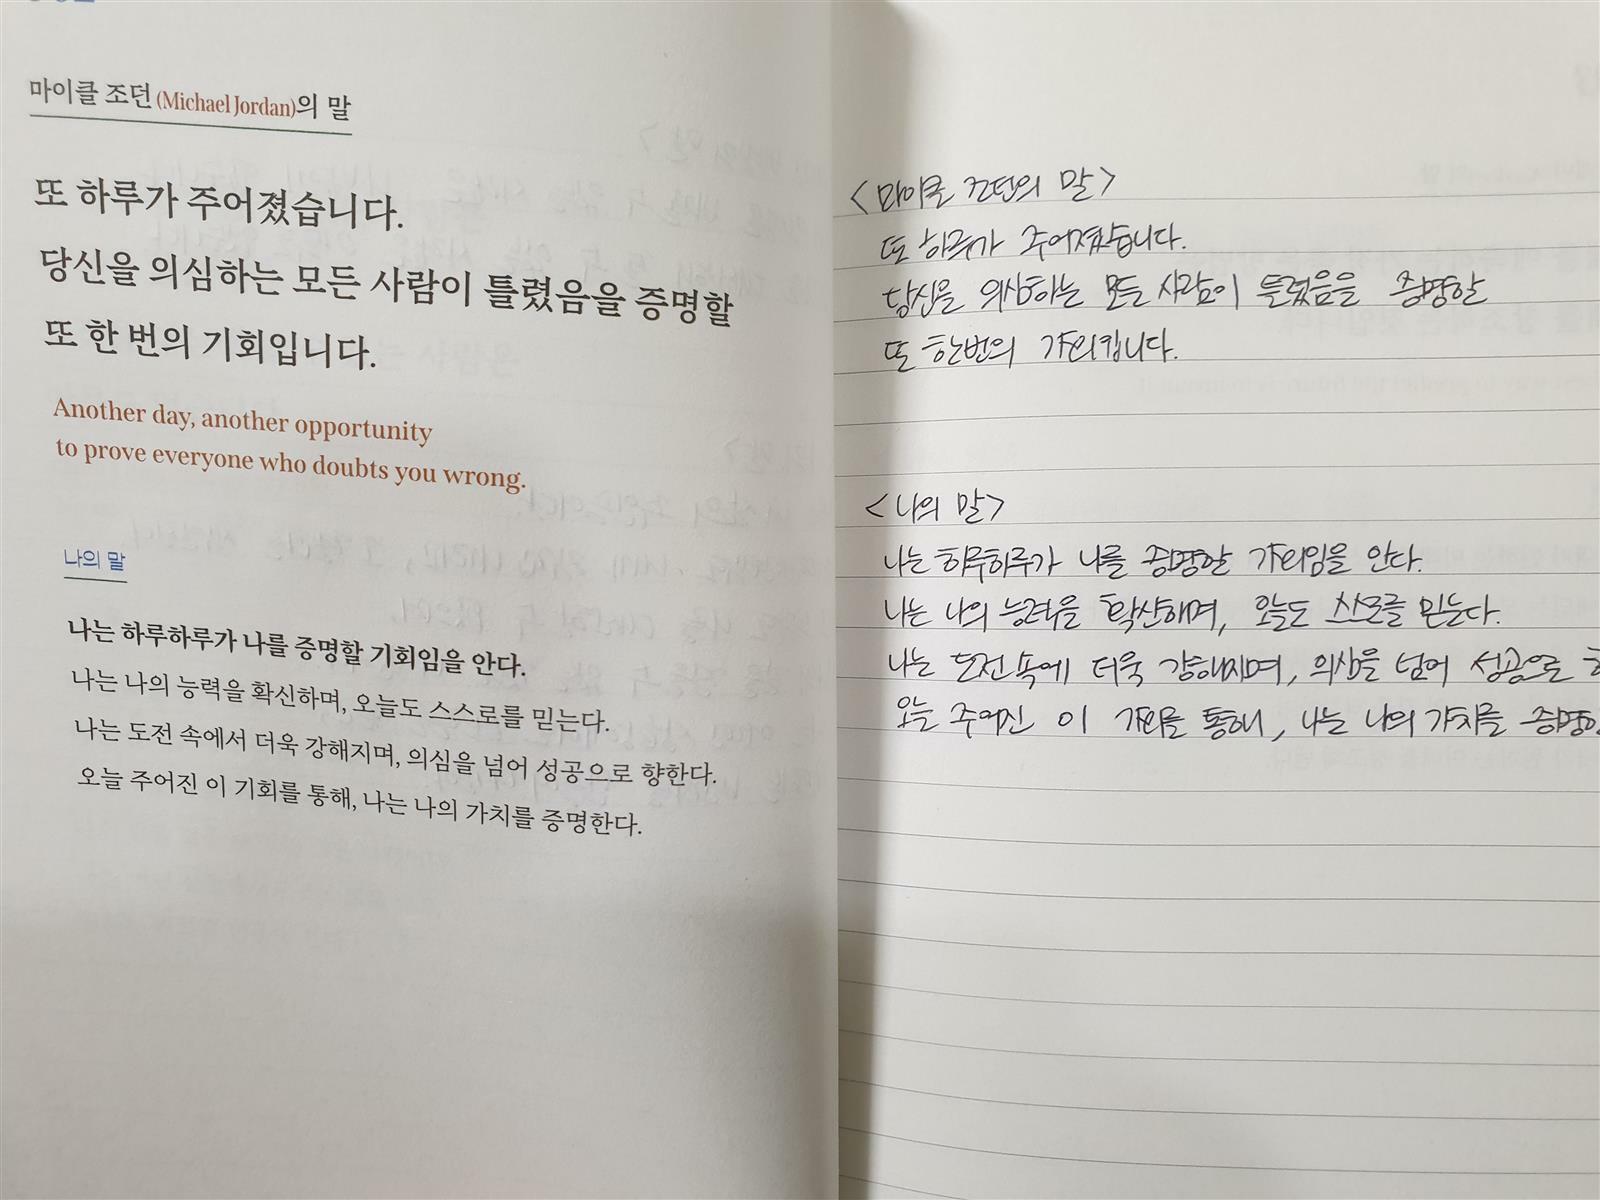 마이클 조던(Michael Jordan)의 말
또 하루가 주어졌습니다.
당신을 의심하는 모든 사람이 틀렸음을 증명할
또 한 번의 기회입니다.
Another day, another opportunity
to prove everyone who doubts you wrong.
나의 말
나는 하루하루가 나를 증명할 기회임을 안다.
나는 나의 능력을 확신하며, 오늘도 스스로를 믿는다.
나는 도전 속에서 더욱 강해지며, 의심을 넘어 성공으로 향한다.
오늘 주어진 이 기회를 통해, 나는 나의 가치를 증명한다.
<마이클 조던의 말>
또 하루가 주어졌습니다.
당신을 의심하는 모든 사람이 틀렸음을 증명할
또 한번의 기회입니다.
<나의 말>
나는 하루하루가 나를 증명할 기회임을 안다.
나는 나의 능력을 확신하며, 오늘도 스스로를 믿는다.
나는 도전 속에 더욱 강해지며, 의심을 넘어 성공으로
오늘 주어진 이 기회를 통해, 나는 나의 가치를 증명